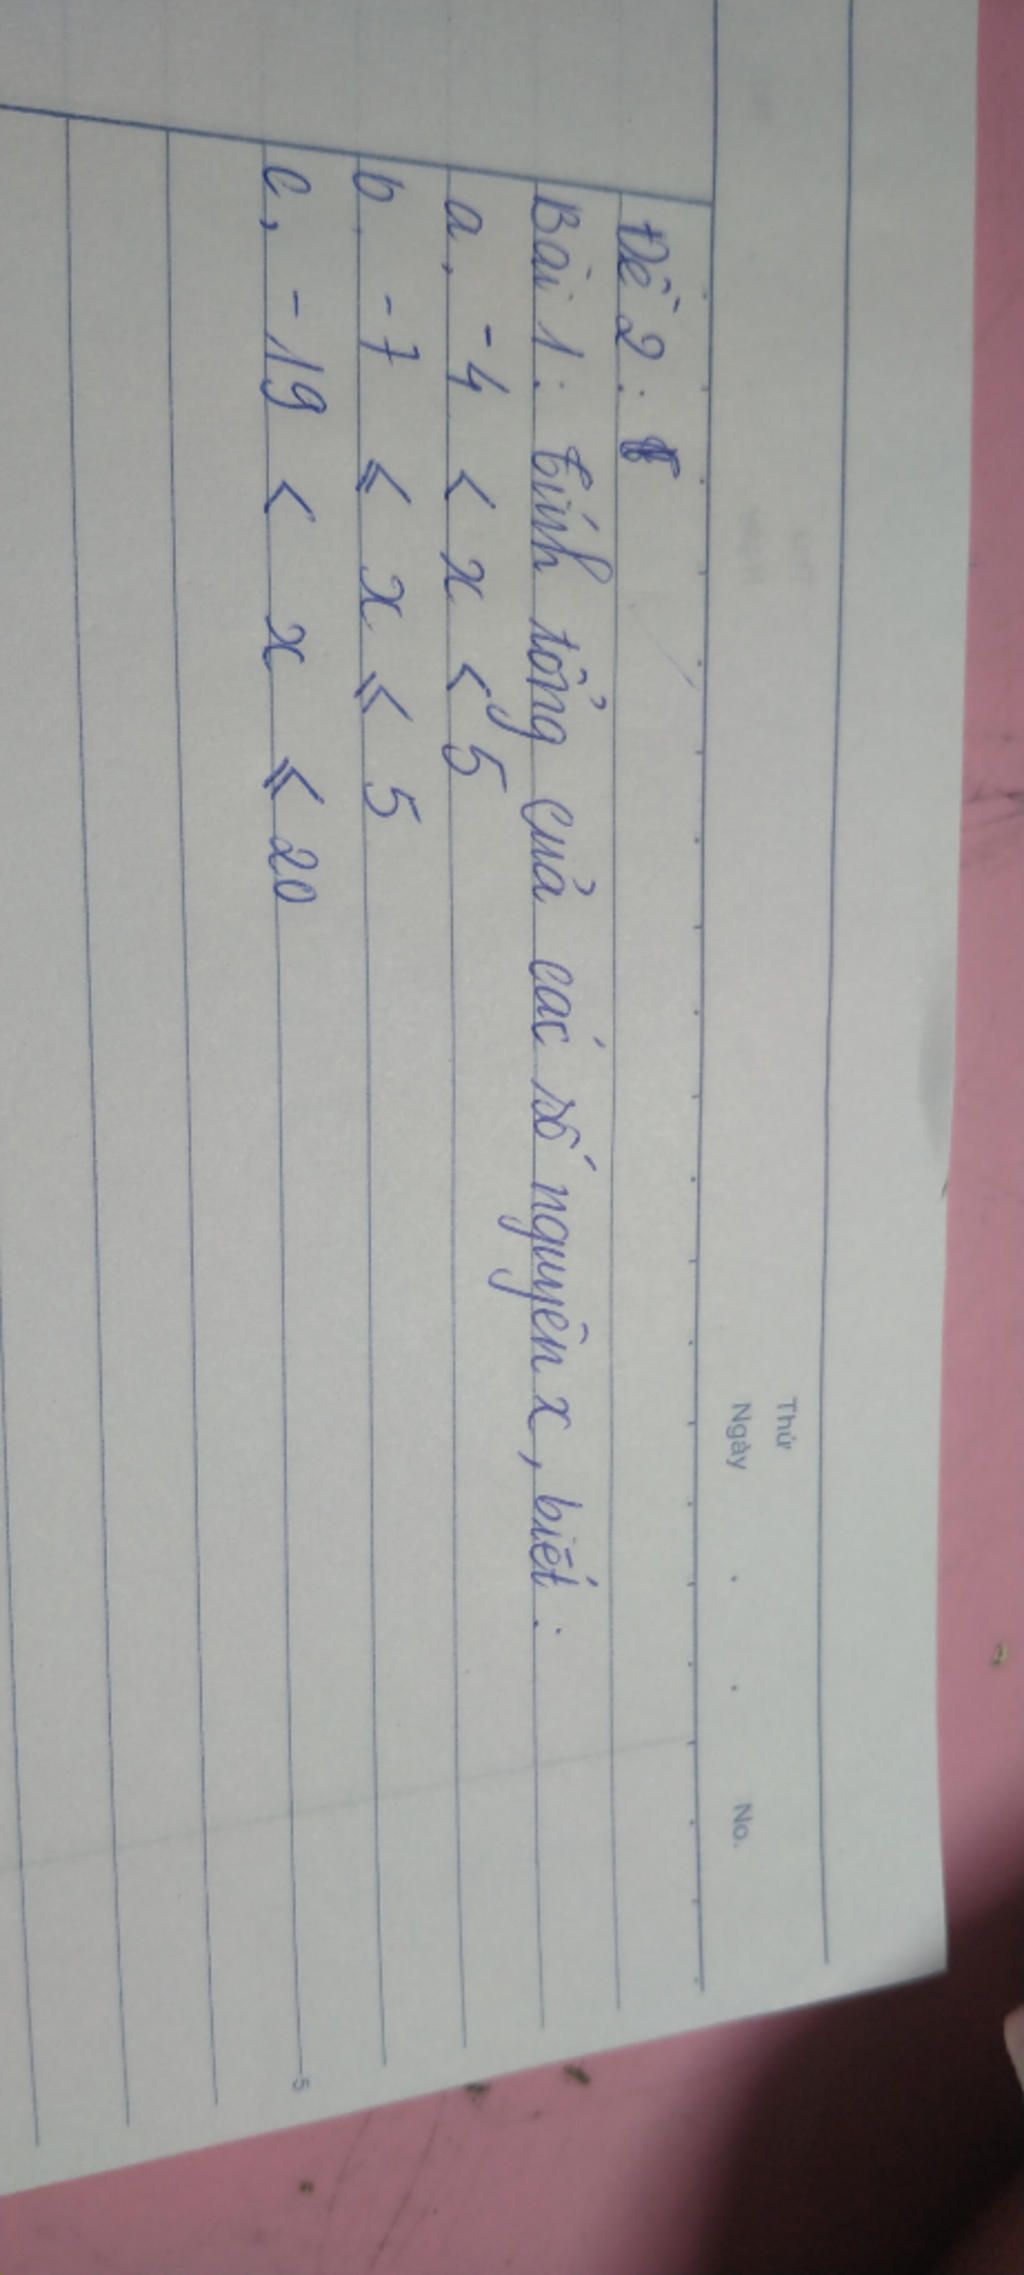 Thứ
Ngày . . No.
Đề 2:
Bài 1: tính tổng của các số nguyên x, biết:
a, -4 < x < 5
b, -7 ≤ x ≤ 5
c, -19 < x ≤ 20
5